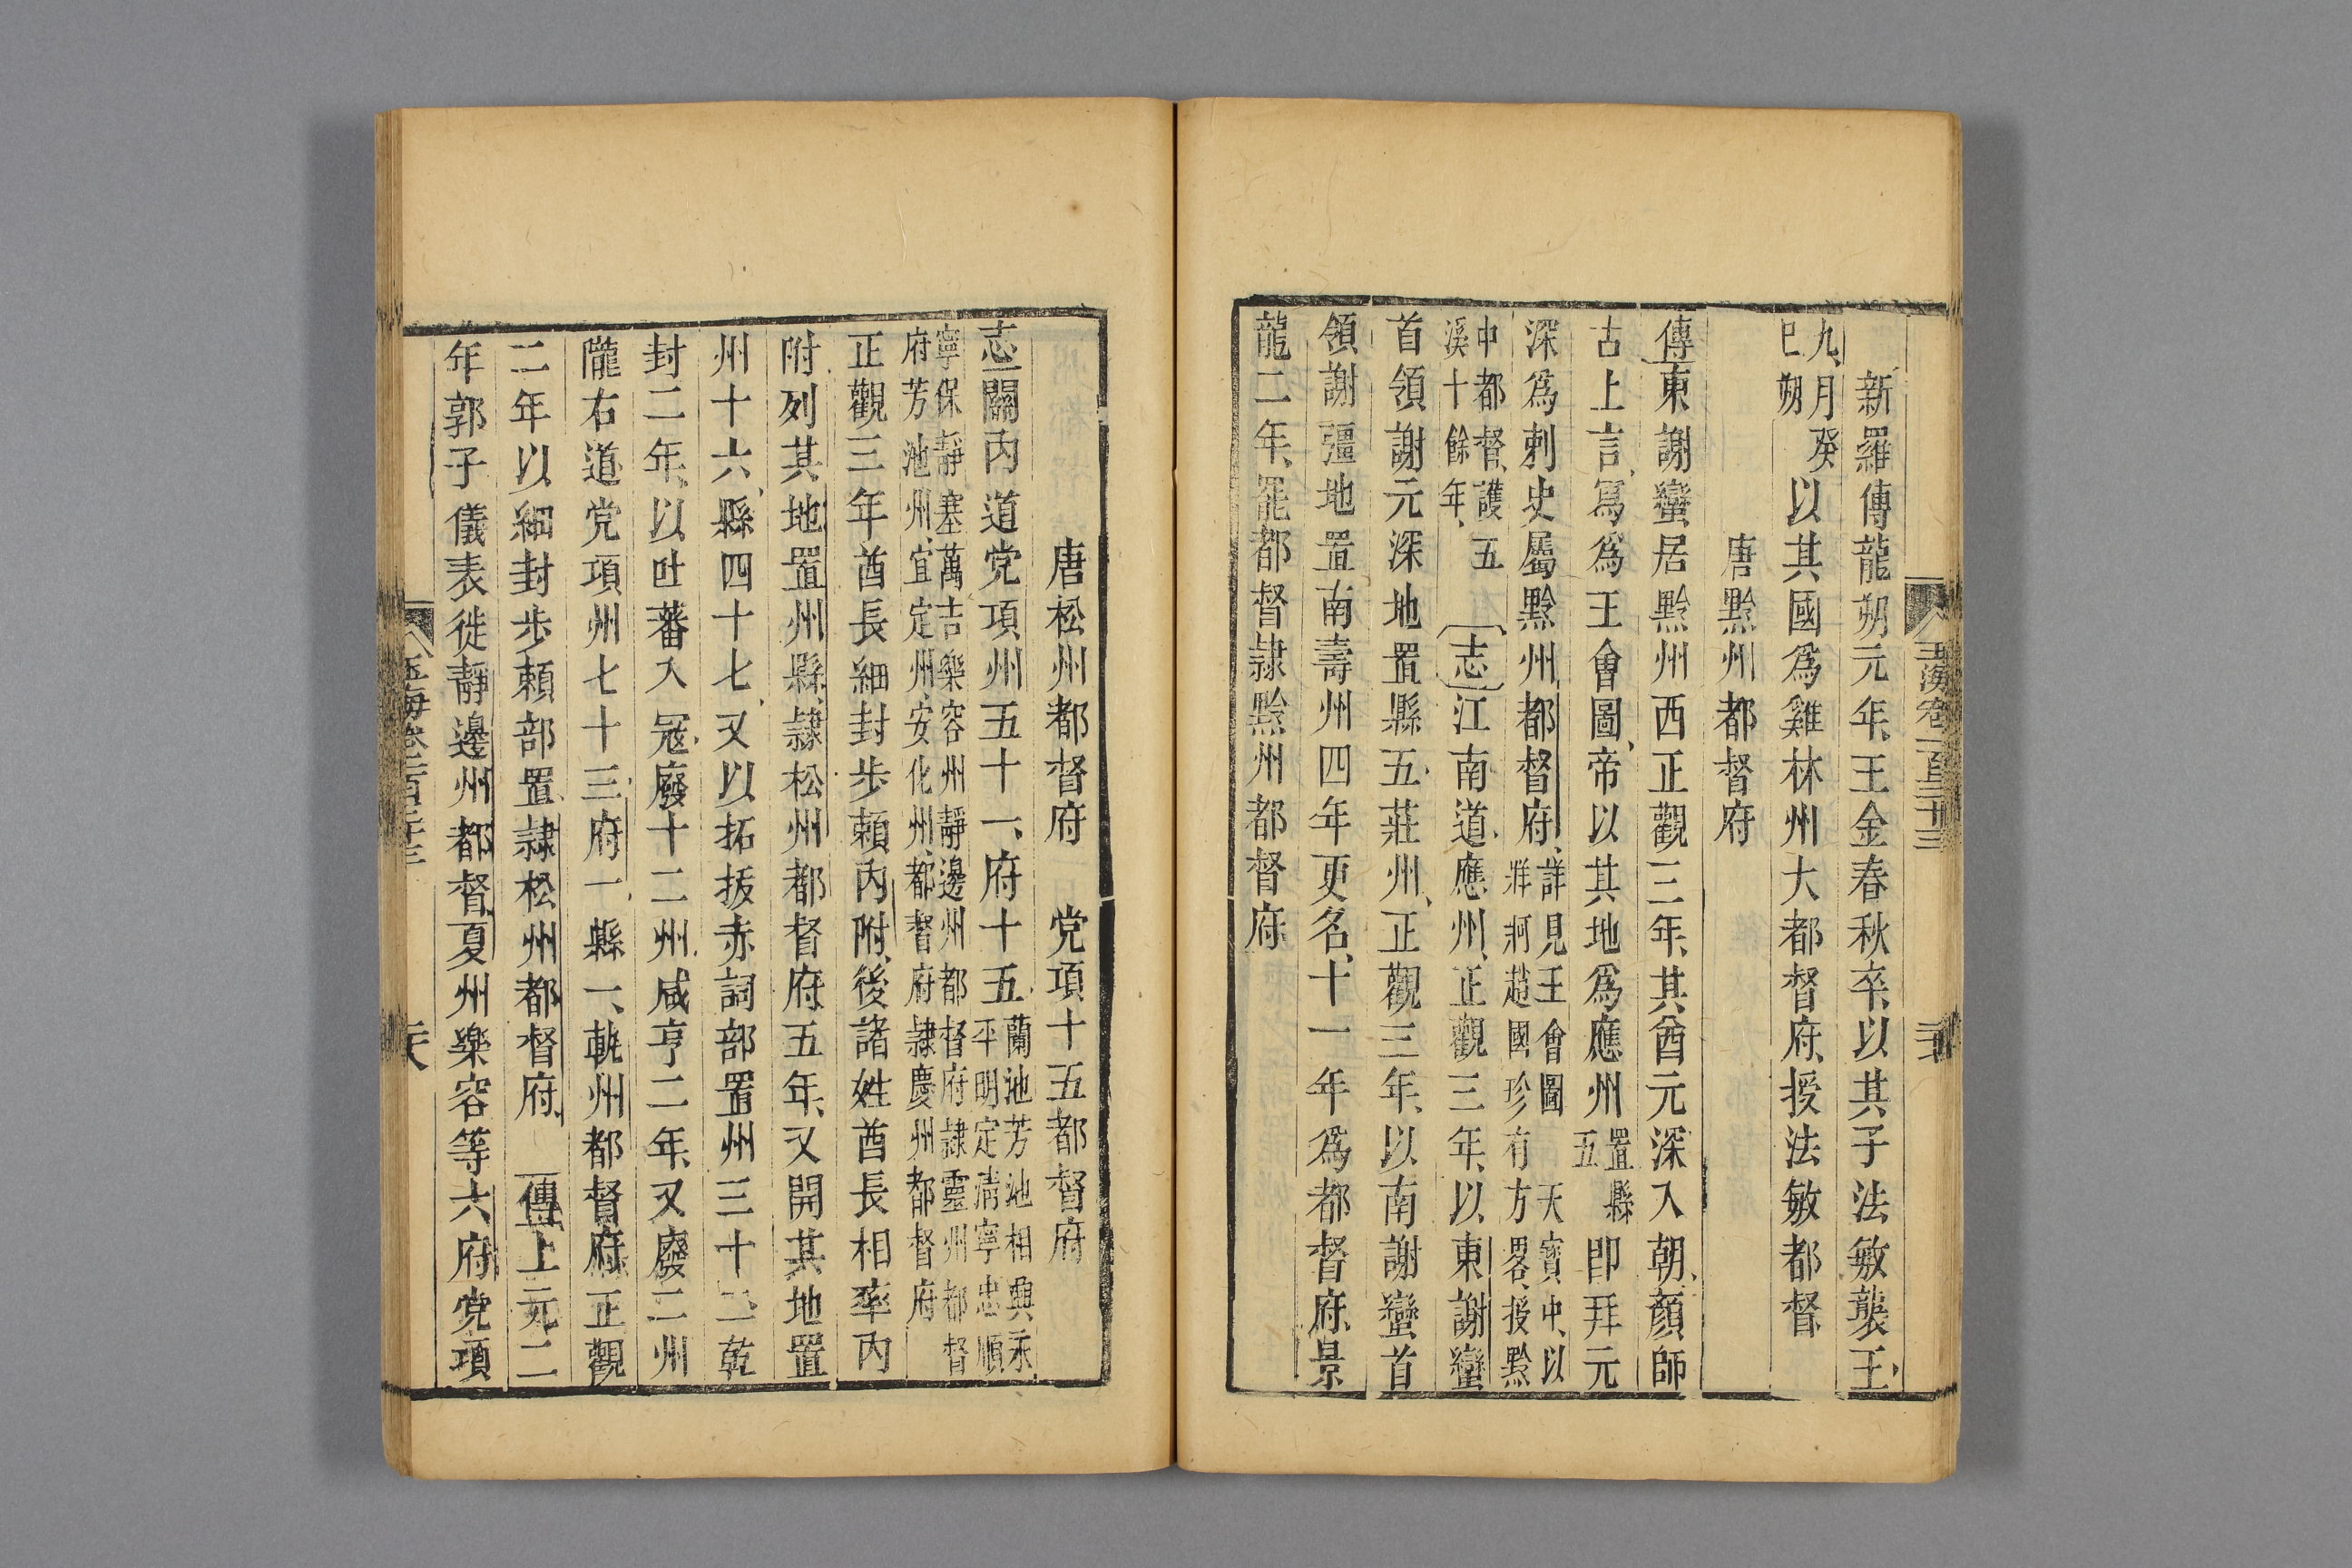 玉海卷一百三十三
新羅傳龍朔元年王金春秋卒以其子法敏襲王
九月癸
巳朔
以其國爲雞林州大都督府授法敏都督
唐黔州都督府
傳東謝蠻居黔州西正觀三年其酋元深入朝顔師
古上言寫爲王會圖帝以其地爲應州
置縣
五
即拜元
深爲刺史屬黔州都督府
詳見王會圖 天寶中以
牂牁趙國珍有方畧授黔
中都督護五
溪十餘年
志江南道應州正觀三年以東謝蠻
首領謝元深地置縣五莊州正觀三年以南謝蠻首
領謝彊地置南壽州四年更名十一年爲都督府景
龍二年罷都督隷黔州都督府
唐松州都督府 党項十五都督府
志關内道党項州五十一府十五
蘭池芳池相興永
平旭定清寧忠順
寧保靜塞萬吉樂容州靜邊州都督府隷靈州都督
府芳池州宜定州安化州都督府隷慶州都督府
正觀三年酋長細封步頼内附後諸姓酋長相率内
附列其地置州縣隷松州都督府五年又開其地置
州十六縣四十七又以拓拔赤詞部置州三十二乾
封二年以吐蕃入冦廢十二州咸亨二年又廢二州
隴右道党項州七十三府一縣一軌州都督府正觀
二年以細封步頼部置隷松州都督府 傳上元二
年郭子儀表徙靜邊州都督夏州樂容等六府党項
玉海卷一百三十三